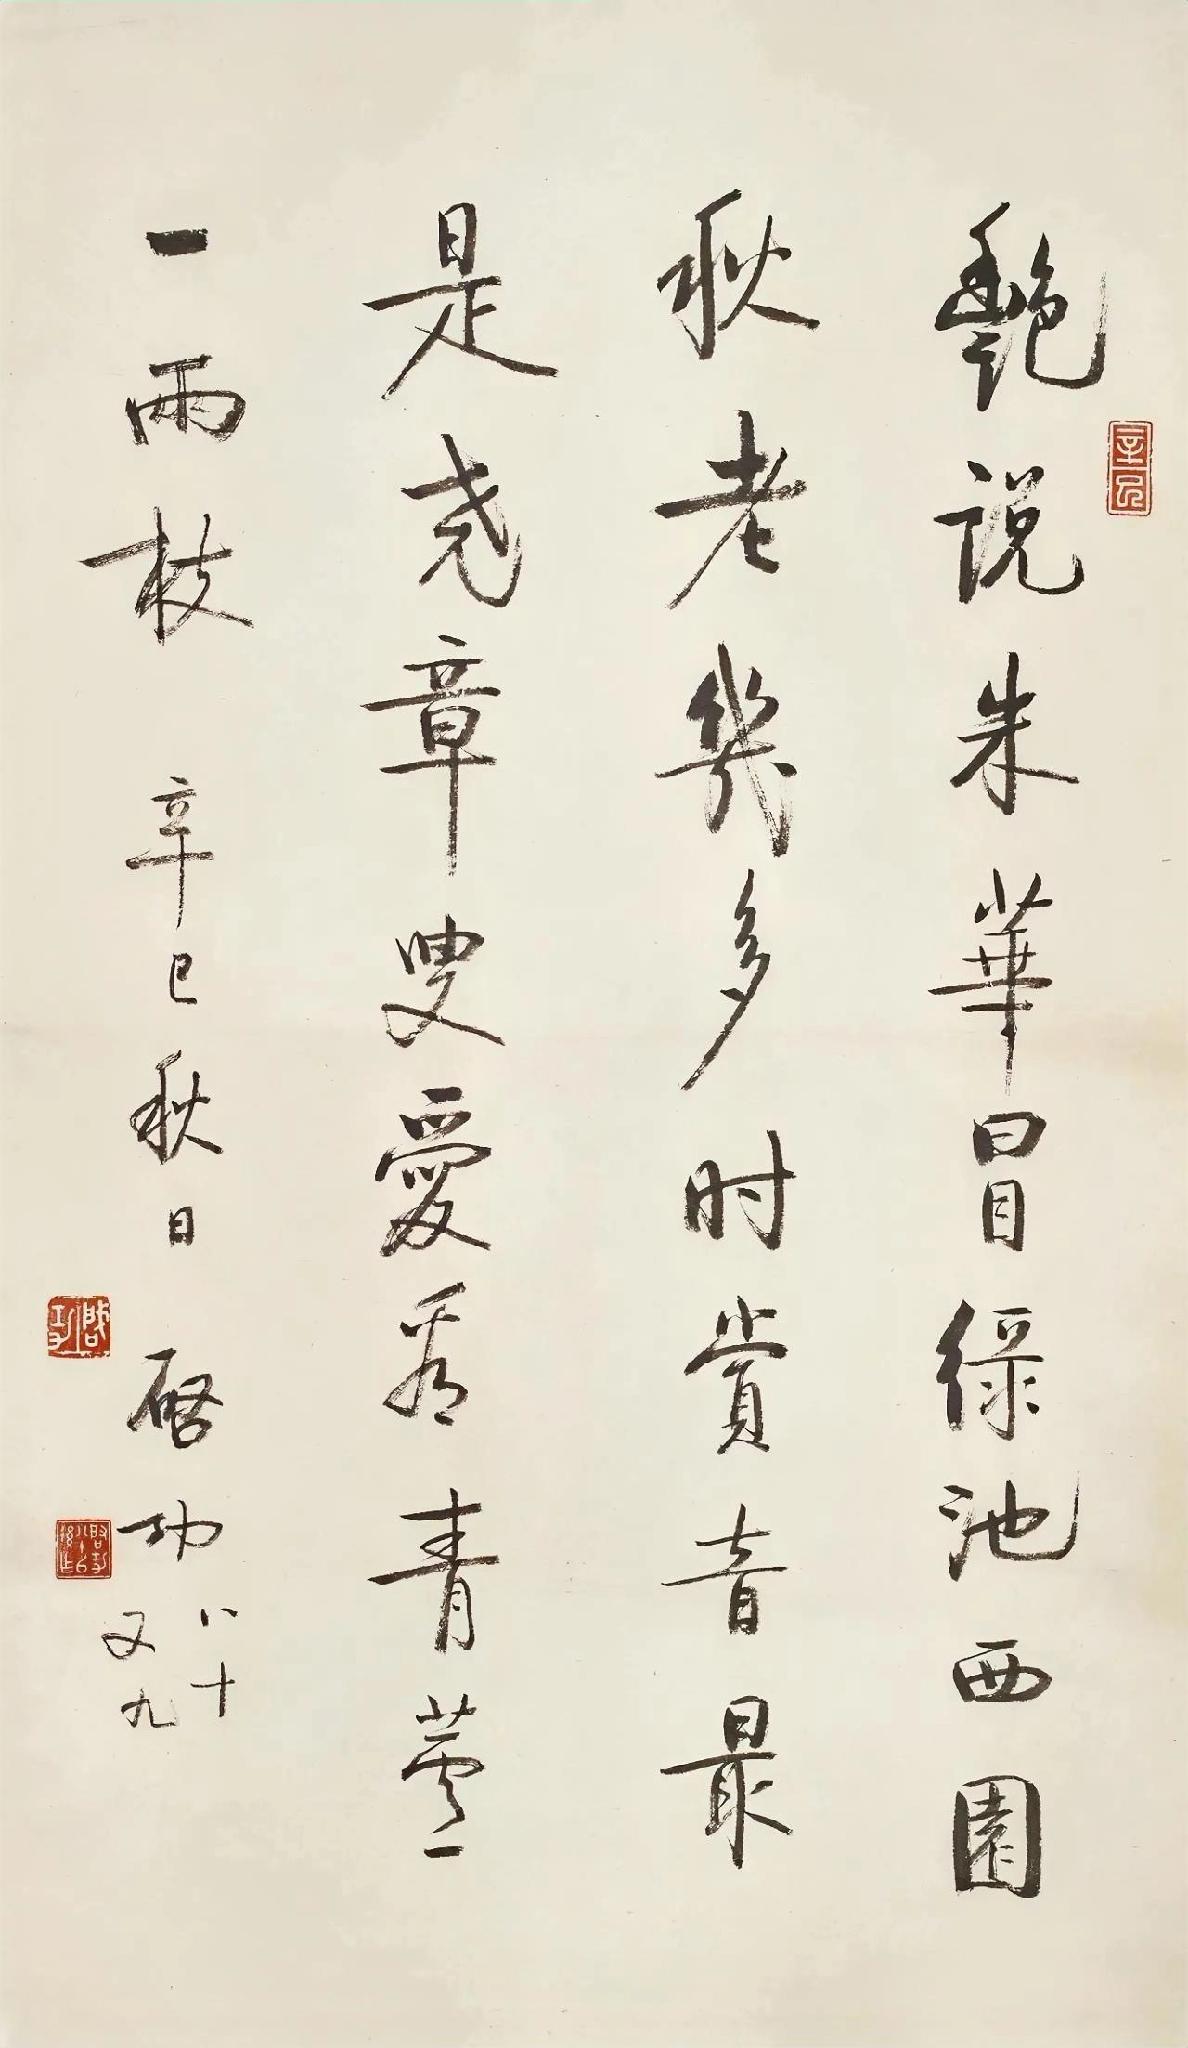 艷說朱華冒綠池西園
秋老幾多时賞音最
是堯章叟愛看青蘆
一兩枝 辛巳秋日 启功 八十又九
啟功